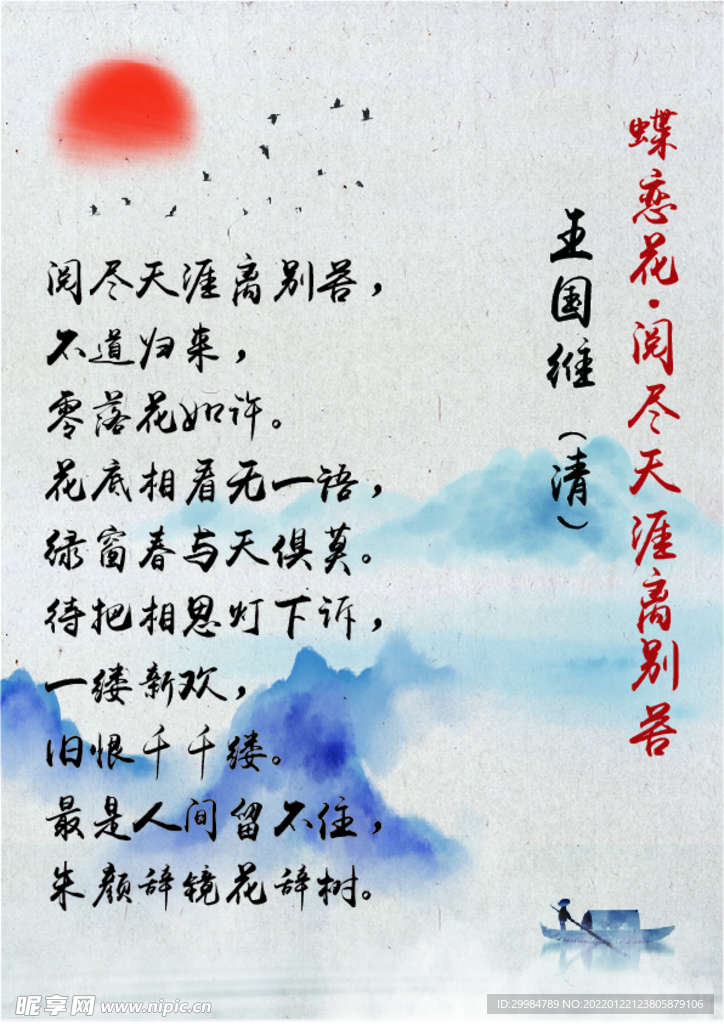 蝶恋花·阅尽天涯离别苦
王国维（清）
阅尽天涯离别苦，
不道归来，
零落花如许。
花底相看无一语，
绿窗春与天俱莫。
待把相思灯下诉，
一缕新欢，
旧恨千千缕。
最是人间留不住，
朱颜辞镜花辞树。
昵享网 www.nipic.cn
ID:29984789 NO:20220122123805879106